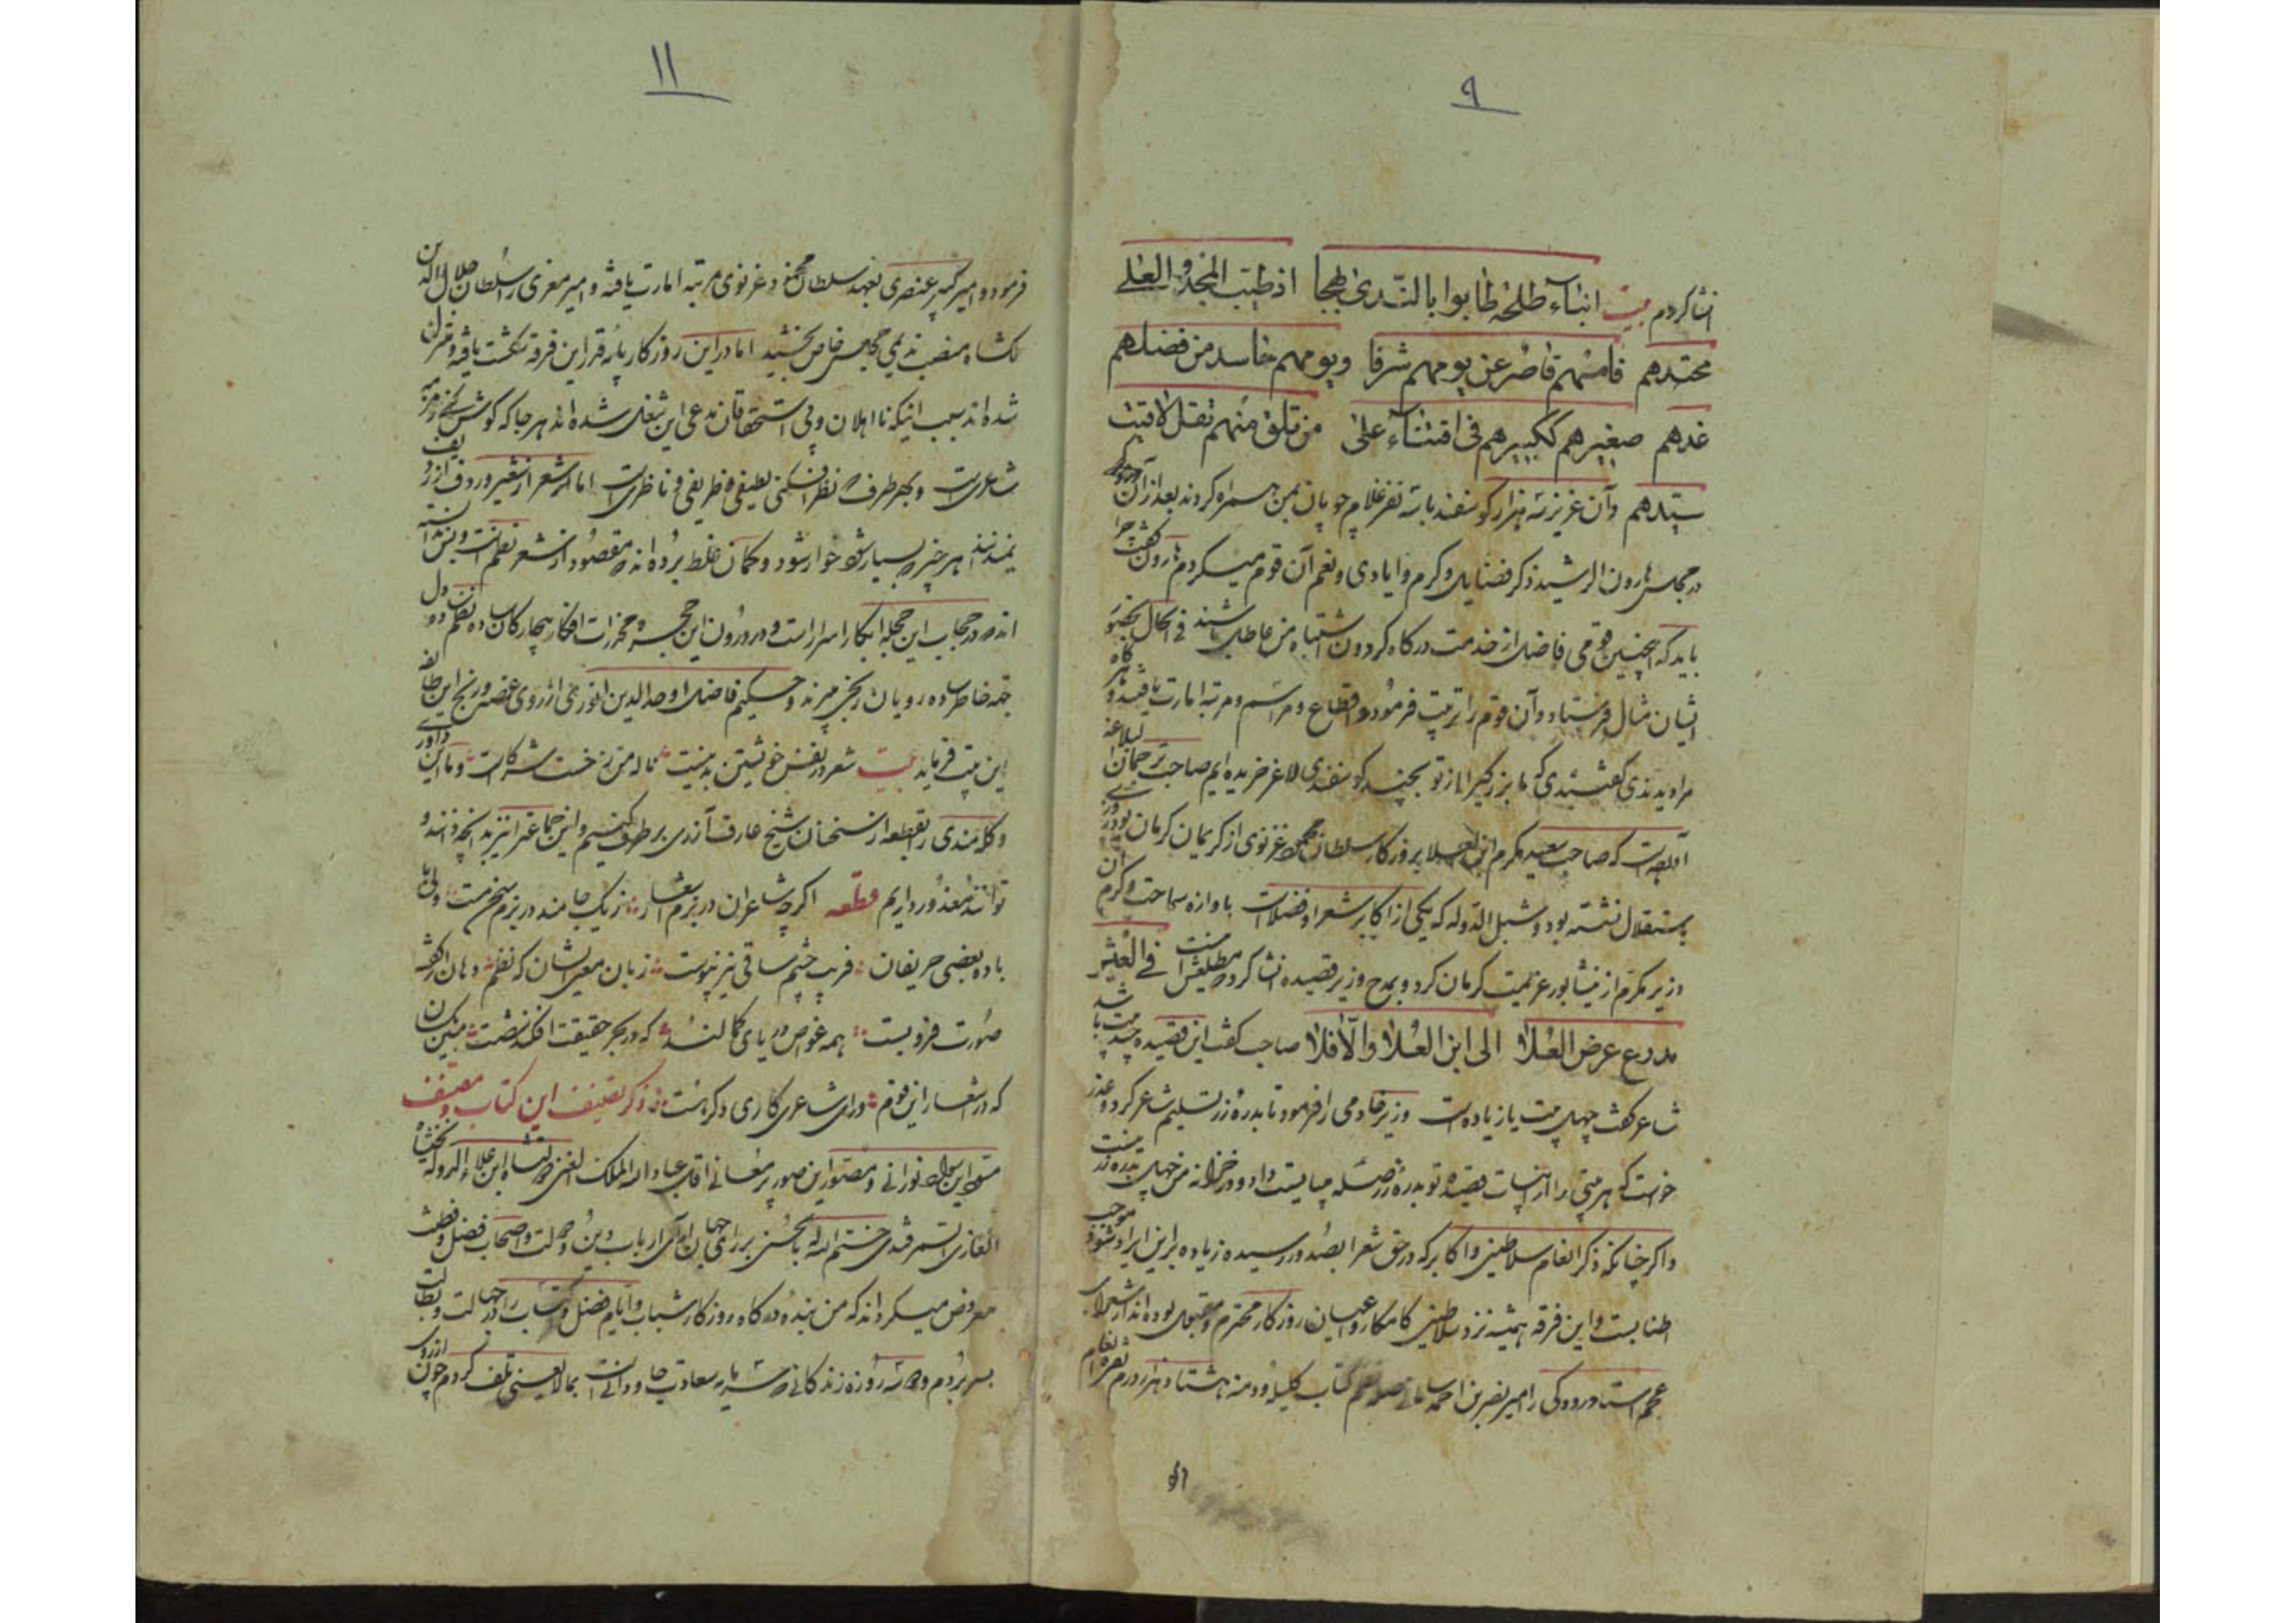 ٩
انشا کردم بیت ابناء طلحة طابوا بالندی طلحا اذ طیب المجد و العلے
محتدهم فامسهم قاصر عن یومهم شرفا ویومهم حاسد من فضلهم
غدهم صغیرهم ککبیرهم فی اقتناء علی من تلق منهم تقل لاقیت
سیدهم وآن عزیز سه هزار کوسفند با سه نفر غلام چوپان بمن همراه کردند بعد از آن روزی
در مجلس هارون الرشید ذکر فضایل و کرم و ایادی و نعم آن قوم میکردم هارون گفت چرا
باید که اینچنین قومی فاضل از خدمت درکاه کردون اشتباه من عاطل باشند فی الحال بحضور
ایشان مثال فرستاد و آن قوم را تربیت فرمود و اقطاع و مراسم و مرتبه امارت یافتند و هرکاه
مرا دیدندی گفتندی که ما بزرگی را از تو بچند کوسفندی لاغر خریده ایم صاحب ترجمان البلاغه
آورده است که صاحب سعید مکرم ابن العلا بروزکار سلطان محمود غزنوی از کریمان کرمان بود و در وزارت آن
باستقلال نشسته بود و شبل الدوله که یکی از اکابر شعرا و فضلاست باوازه سماحت و کرم
وزیر مکرم از نیشابور عزیمت کرمان کرد و بمدح وزیر قصیده انشا کرد که مطلعش اینست فے العیس
مدرع عرض الفلا الی ابن العلا والا فلا صاحب گفت این قصیده چند بیت باشد
شاعر گفت چهل بیت یا زیاده است وزیر خادمی را فرمود تا بدره زر تسلیم شاعر کرد و عذر
خواست که هر بیتی را از ابیات قصیده تو بدره زر صله میبایست داد و در خزانه من چهل بدره زر نیست
و اکر چنانکه ذکر انعام سلاطین و اکابر که در حق شعرا بصدور رسیده زیاده برین ایراد شود موجب
اطنابست و این فرقه همیشه نزد سلاطین کامکار و اعیان روزکار محترم و مقبول بوده اند از شعرای
عجم استاد رودکی را امیر نصر بن احمد سامانی صله نظم کتاب کلیله و دمنه هشتاد هزار درم نقره انعام
١١
فرمود و امیر کبیر عنصری بعهد سلطان محمود غزنوی مرتبه امارت یافته و امیر معزی را سلطان جلال الدین
ملکشاه منصب ندیمی مجلس خاص بخشید اما در این روزکار پایه قدر این فرقه شکست یافته و متزلزل
شده اند سبب اینکه نااهلان و بی استحقاقان مدعی این شغل شده اند هر جا که کوش کنی زمزمه
شاعریست و بهر طرف که نظر افکنی لطیفی و ظریفی و ناظریست اما شعر از شعیر و ردیف از ردف
نمیدانند هر چیز که بسیار شود خوار شود و کمان غلط برده اند که مقصود از شعر نظم است و بس ندانسته
اند که در حجاب این حجله ابکار اسرار است و در درون این حجره مخدرات افکار بیچارکان ساده نظم دون دل
جمه خاطر ساده رویان زنخ میزنند و حکیم فاضل اوحد الدین انوری از روی غصه و رنج این طایفه
این بیت فرماید بیت شعر در نفس خویشتن بد نیست ناله من ز خست شرکاست و ما این داوری
و کله مندی را بقطعه از سخنان شیخ عارف آذری بر طرف کنیم و این جماعت را نیز بدانچه دانند و
توانند معذور داریم قطعه اکرچه شاعران در بزم اشعار ز یک جامند در بزم سخن مست ولی با
باده بعضی حریفان فریب چشم ساقی نیز پیوست زبان معنی ایشان که نظم دهان را گفت
صورت فروبست همه غواص دریای کمالند که در بحر حقیقت افکنند شست مبین یکسان
که در اشعار این قوم ورای شاعری کاری دکر هست ذکر تصنیف این کتاب و مصنف
مسود این سواد نورانی و مصور این صور پر معانی اقل عباد الله الملک الغنی دولتشاه ابن علاء الدوله بختیشاه
الغازی السمرقندی ختم الله له بالحسنی بر رای جهان آرای ارباب دین و دولت و اصحاب فضل و فطنت
معروض میکرداند که من بنده در کاه روزکار شباب و ایام فضل و اکتساب را در جهالت و بطالت
بسر بردم و سه روزه زندکانی که سرمایه سعادت جاودانیست بمالایعنی تلف کردم چون از روی